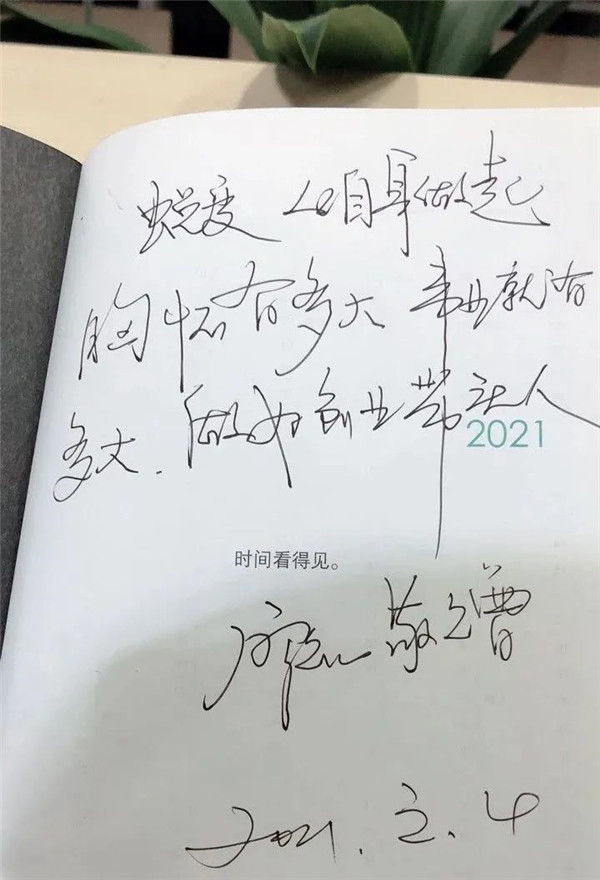 蜕变 从自身做起
胸怀有多大 事业就有
多大.做好创业带头人
2021
时间看得见。
敬赠
2021.2.4